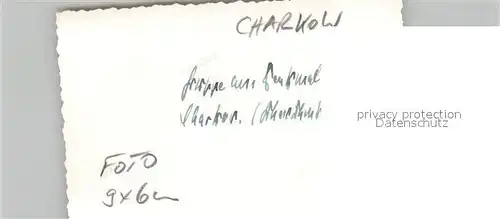 CHARKOW
Gruppe am Denkmal
Charkow.
privacy protection
Datenschutz
FOTO
9x6cm